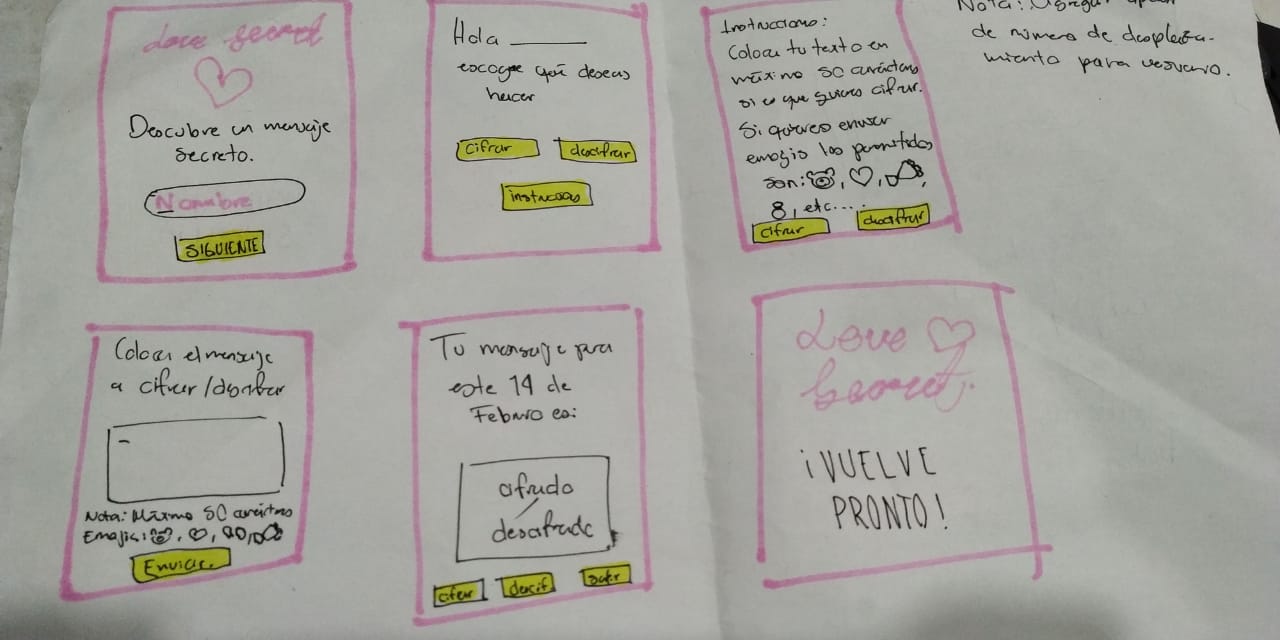 Love Secret
Descubre un mensaje
secreto.
Nombre
SIGUIENTE
Hola ______
escoge qué deseas
hacer
cifrar
descifrar
Instrucciones:
Coloca tu texto en
máximo 50 carácteres
si es que quieres cifrar.
Si quieres enviar
emojis los permitidos
son:
8, etc....
cifrar
descifrar
Nota: Agregar
de número de desplaza-
miento para usuario.
Colocar el mensaje
a cifrar/descifrar
Nota: Máximo 50 carácteres
Emojis:
Enviar.
Tu mensaje para
este 14 de
Febrero es:
cifrado
/
descifrado
cifrar
descif
salir
Love
Secret.
¡VUELVE
PRONTO!